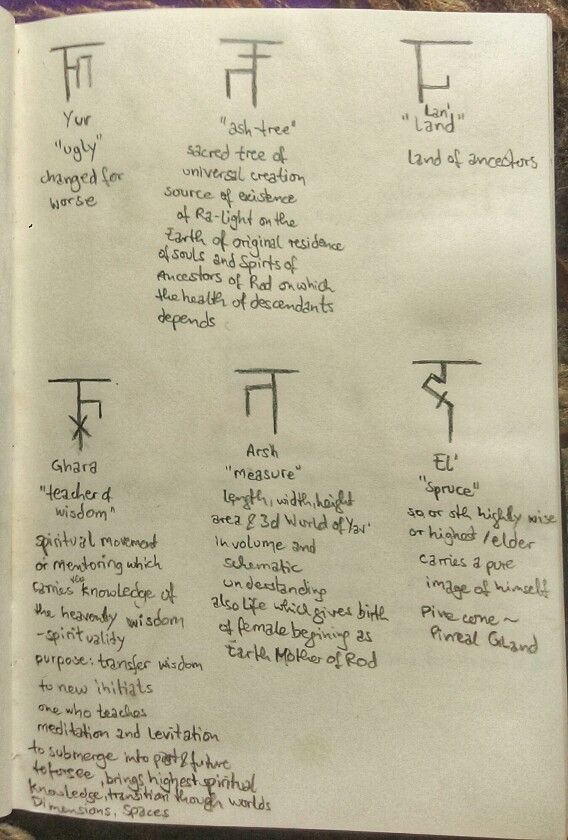 Yur
"ugly"
changed for
worse
"ash-tree"
sacred tree of
universal creation
source of existence
of Ra-light on the
Earth of original residence
of souls and Spirts of
Ancestors of Rod on which
the health of descendants
depends
Lan'
"Land"
Land of ancestors
Ghara
"teacher of
wisdom"
spiritual movement
or mentoring which
carries the knowledge of
the heavenly wisdom
-spirituality
purpose: transfer wisdom
to new initials
one who teaches
meditation and Levitation
to submerge into past & future
toforsee, brings highest spiritual
knowledge, transition though worlds
Dimensions, Spaces
Arsh
"measure"
length, width, height
area & 3d World of Yav'
in volume and
schematic
understanding
also Life which gives birth
of female begining as
Earth Mother of Rod
El'
"Spruce"
so, or sth highly wise
or highest/elder
carries a pure
image of himself
Pine cone ~
Pinreal GLand